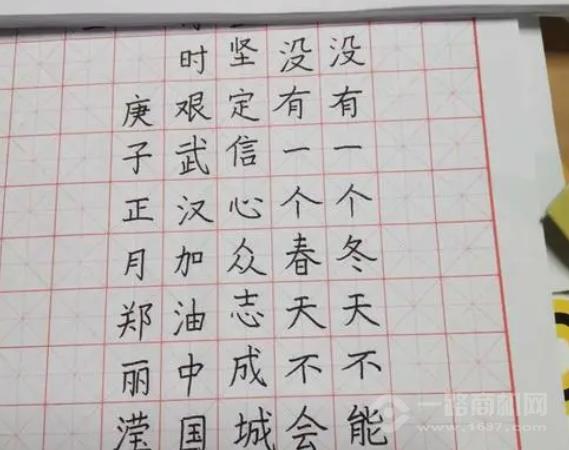 没有一个冬天不能
没有一个春天不会
坚定信心众志成城
时艰武汉加油中国
庚子正月郑丽滢
一路商机网
www.1637.com